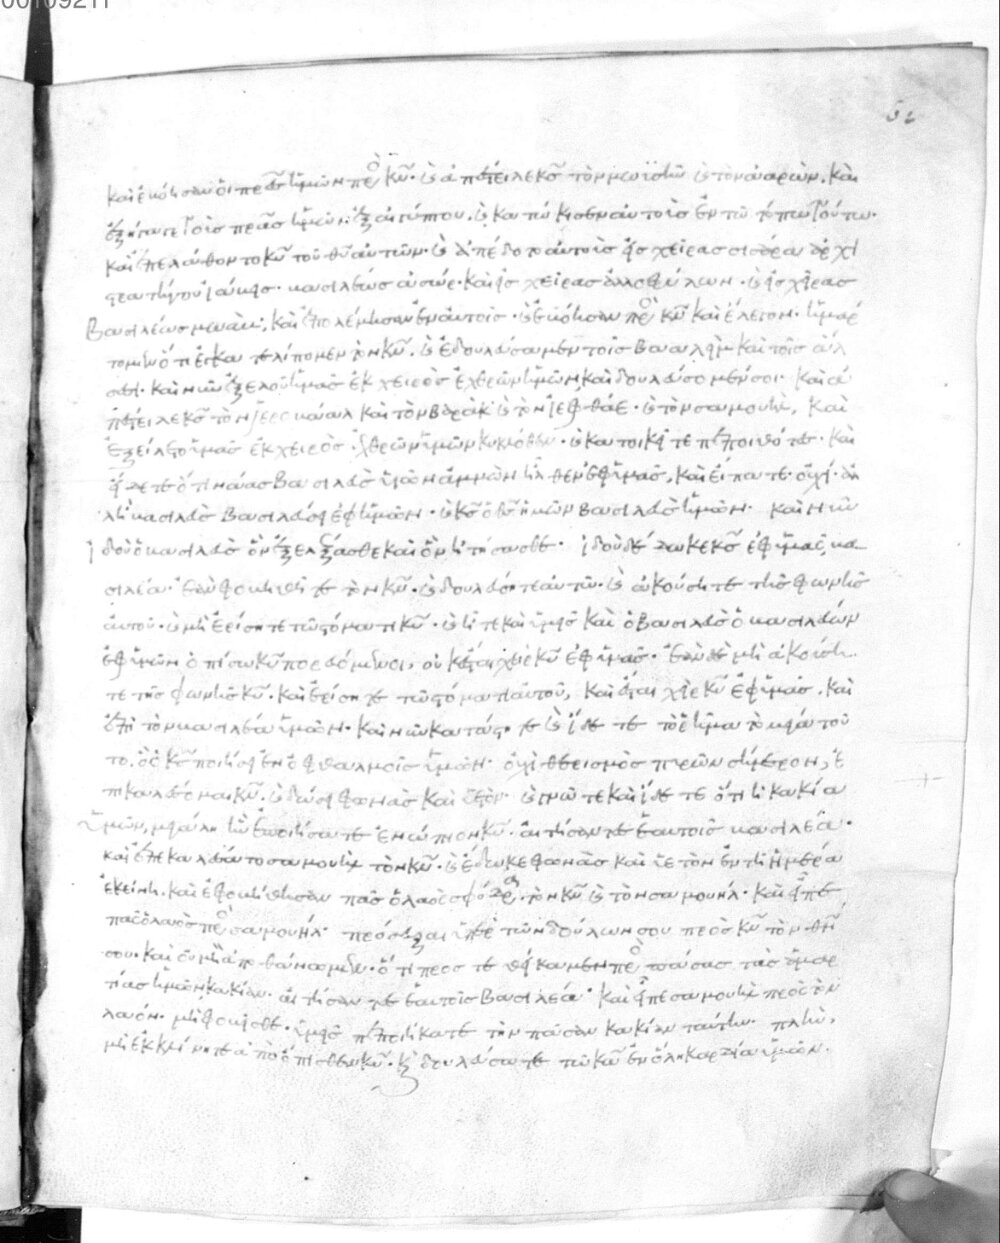 καὶ ἐβόησαν οἱ πρσ ἡμῶν πρὸ κν. καὶ ἀπέστειλε κσ τὸν μωϊσῆν καὶ τὸν ἀαρών. καὶ
ἐξήγαγε τοὺσ πρασ ἡμῶν ἐξ αἰγύπτου. καὶ κατώκισεν αὐτοὺσ ἐν τῶ τόπω τούτω.
καὶ ἐπελάθοντο κυ τοῦ θυ αὐτῶν. καὶ ἀπέδοτο αὐτοὺσ εἰσ χεῖρασ σισάρα ἀρχι
στρατήγου ἰαβεὶσ βασιλέωσ ἀσώρ. καὶ εἰσ χεῖρασ ἀλλοφύλων. καὶ εἰσ χεῖρασ
βασιλέωσ μωάβ. καὶ ἐπολέμησαν ἐν αὐτοῖσ. καὶ ἐβόησαν πρὸ κν καὶ ἔλεγον. ἡμάρ
τομεν ὅτι ἐγκατελίπομεν τὸν κν. καὶ ἐδουλεύσαμεν τοῖσ βααλεὶμ καὶ τοῖσ ἄλ
σεσι. καὶ νῦν ἐξελοῦ ἡμᾶσ ἐκ χειρὸσ ἐχθρῶν ἡμῶν καὶ δουλεύσομέν σοι. καὶ ἀ
πέστειλε κσ τὸν ἱεροβάαλ καὶ τὸν βαρὰκ καὶ τὸν ἰεφθάε. καὶ τὸν σαμουήλ, καὶ
ἐξείλετο ἡμᾶσ ἐκ χειρὸσ ἐχθρῶν ἡμῶν κυκλόθεν. καὶ κατοικεῖτε πεποιθότεσ. καὶ
εἴδετε ὅτι νάασ βασιλεὺσ υἱῶν ἀμμὼν ἦλθεν ἐφ ἡμᾶσ, καὶ εἴπατε. οὐχὶ. ἀλ
λὴ βασιλεὺσ βασιλεύσει ἐφ ἡμῶν. καὶ κσ ὁ θσ ἡμῶν βασιλεὺσ ἡμῶν. καὶ νῦν
ἰδοὺ ὁ βασιλεὺσ ὃν ἐξελέξασθε καὶ ὃν ᾐτήσασθε. ἰδοὺ δέδωκε κσ ἐφ ὑμᾶσ βα
σιλέα. ἐὰν φοβηθῆτε τὸν κν. καὶ δουλεύσητε αὐτῶ. καὶ ἀκούσητε τῆσ φωνῆσ
αὐτοῦ. καὶ μὴ ἐρίσητε τῶ στόματι κυ. καὶ ἦτε καὶ ὑμεῖσ καὶ ὁ βασιλεὺσ ὁ βασιλεύων
ἐφ ὑμῶν ὀπίσω κυ πορευόμενοι, οὐκ ἔσται χεὶρ κυ ἐφ ὑμᾶσ. ἐὰν δὲ μὴ ἀκούση
τε τῆσ φωνῆσ κυ. καὶ ἐρίσητε τῶ στόματι αὐτοῦ, καὶ ἔσται χεὶρ κυ ἐφ ὑμᾶσ. καὶ
ἐπὶ τὸν βασιλέα ὑμῶν. καὶ νῦν κατάστητε καὶ ἴδετε τὸ ῥῆμα τὸ μέγα τοῦ
το. ὃ ὁ κσ ποιήσει ἐν ὀφθαλμοῖσ ὑμῶν. οὐχὶ θερισμὸσ πυρῶν σήμερον, ἐ
πικαλέσομαι κν. καὶ δώσει φωνὰσ καὶ ὑετόν. καὶ γνῶτε καὶ ἴδετε ὅτι ἡ κακία
ὑμῶν μεγάλη ἣν ἐποιήσατε ἐνώπιον κυ. αἰτήσαντεσ ἑαυτοῖσ βασιλέα.
καὶ ἐπεκαλέσατο σαμουὴλ τὸν κν. καὶ ἔδωκε φωνὰσ καὶ ὑετὸν ἐν τῆ ἡμέρα
ἐκείνη. καὶ ἐφοβήθησαν πᾶσ ὁ λαὸσ σφόδρα τὸν κν καὶ τὸν σαμουήλ. καὶ εἶπε
πᾶσ ὁ λαὸσ πρὸ σαμουήλ. πρόσευξαι ὑπὲρ τῶν δούλων σου πρὸσ κν τὸν θν
σου. καὶ οὐ μὴ ἀποθάνωμεν. ὅτι προστεθείκαμεν πρὸ πάσασ τὰσ ἁμαρ
τίασ ἡμῶν κακίαν. αἰτήσαντεσ ἑαυτοῖσ βασιλέα. καὶ εἶπε σαμουὴλ πρὸσ τὸν
λαόν. μὴ φοβεῖσθε. ὑμεῖσ πεποιήκατε τὴν πᾶσαν κακίαν ταύτην. πλὴν,
μὴ ἐκκλίνητε ἀπὸ ὄπισθεν κυ. καὶ δουλεύσατε τῶ κω ἐν ὅλη καρδία ὑμῶν.